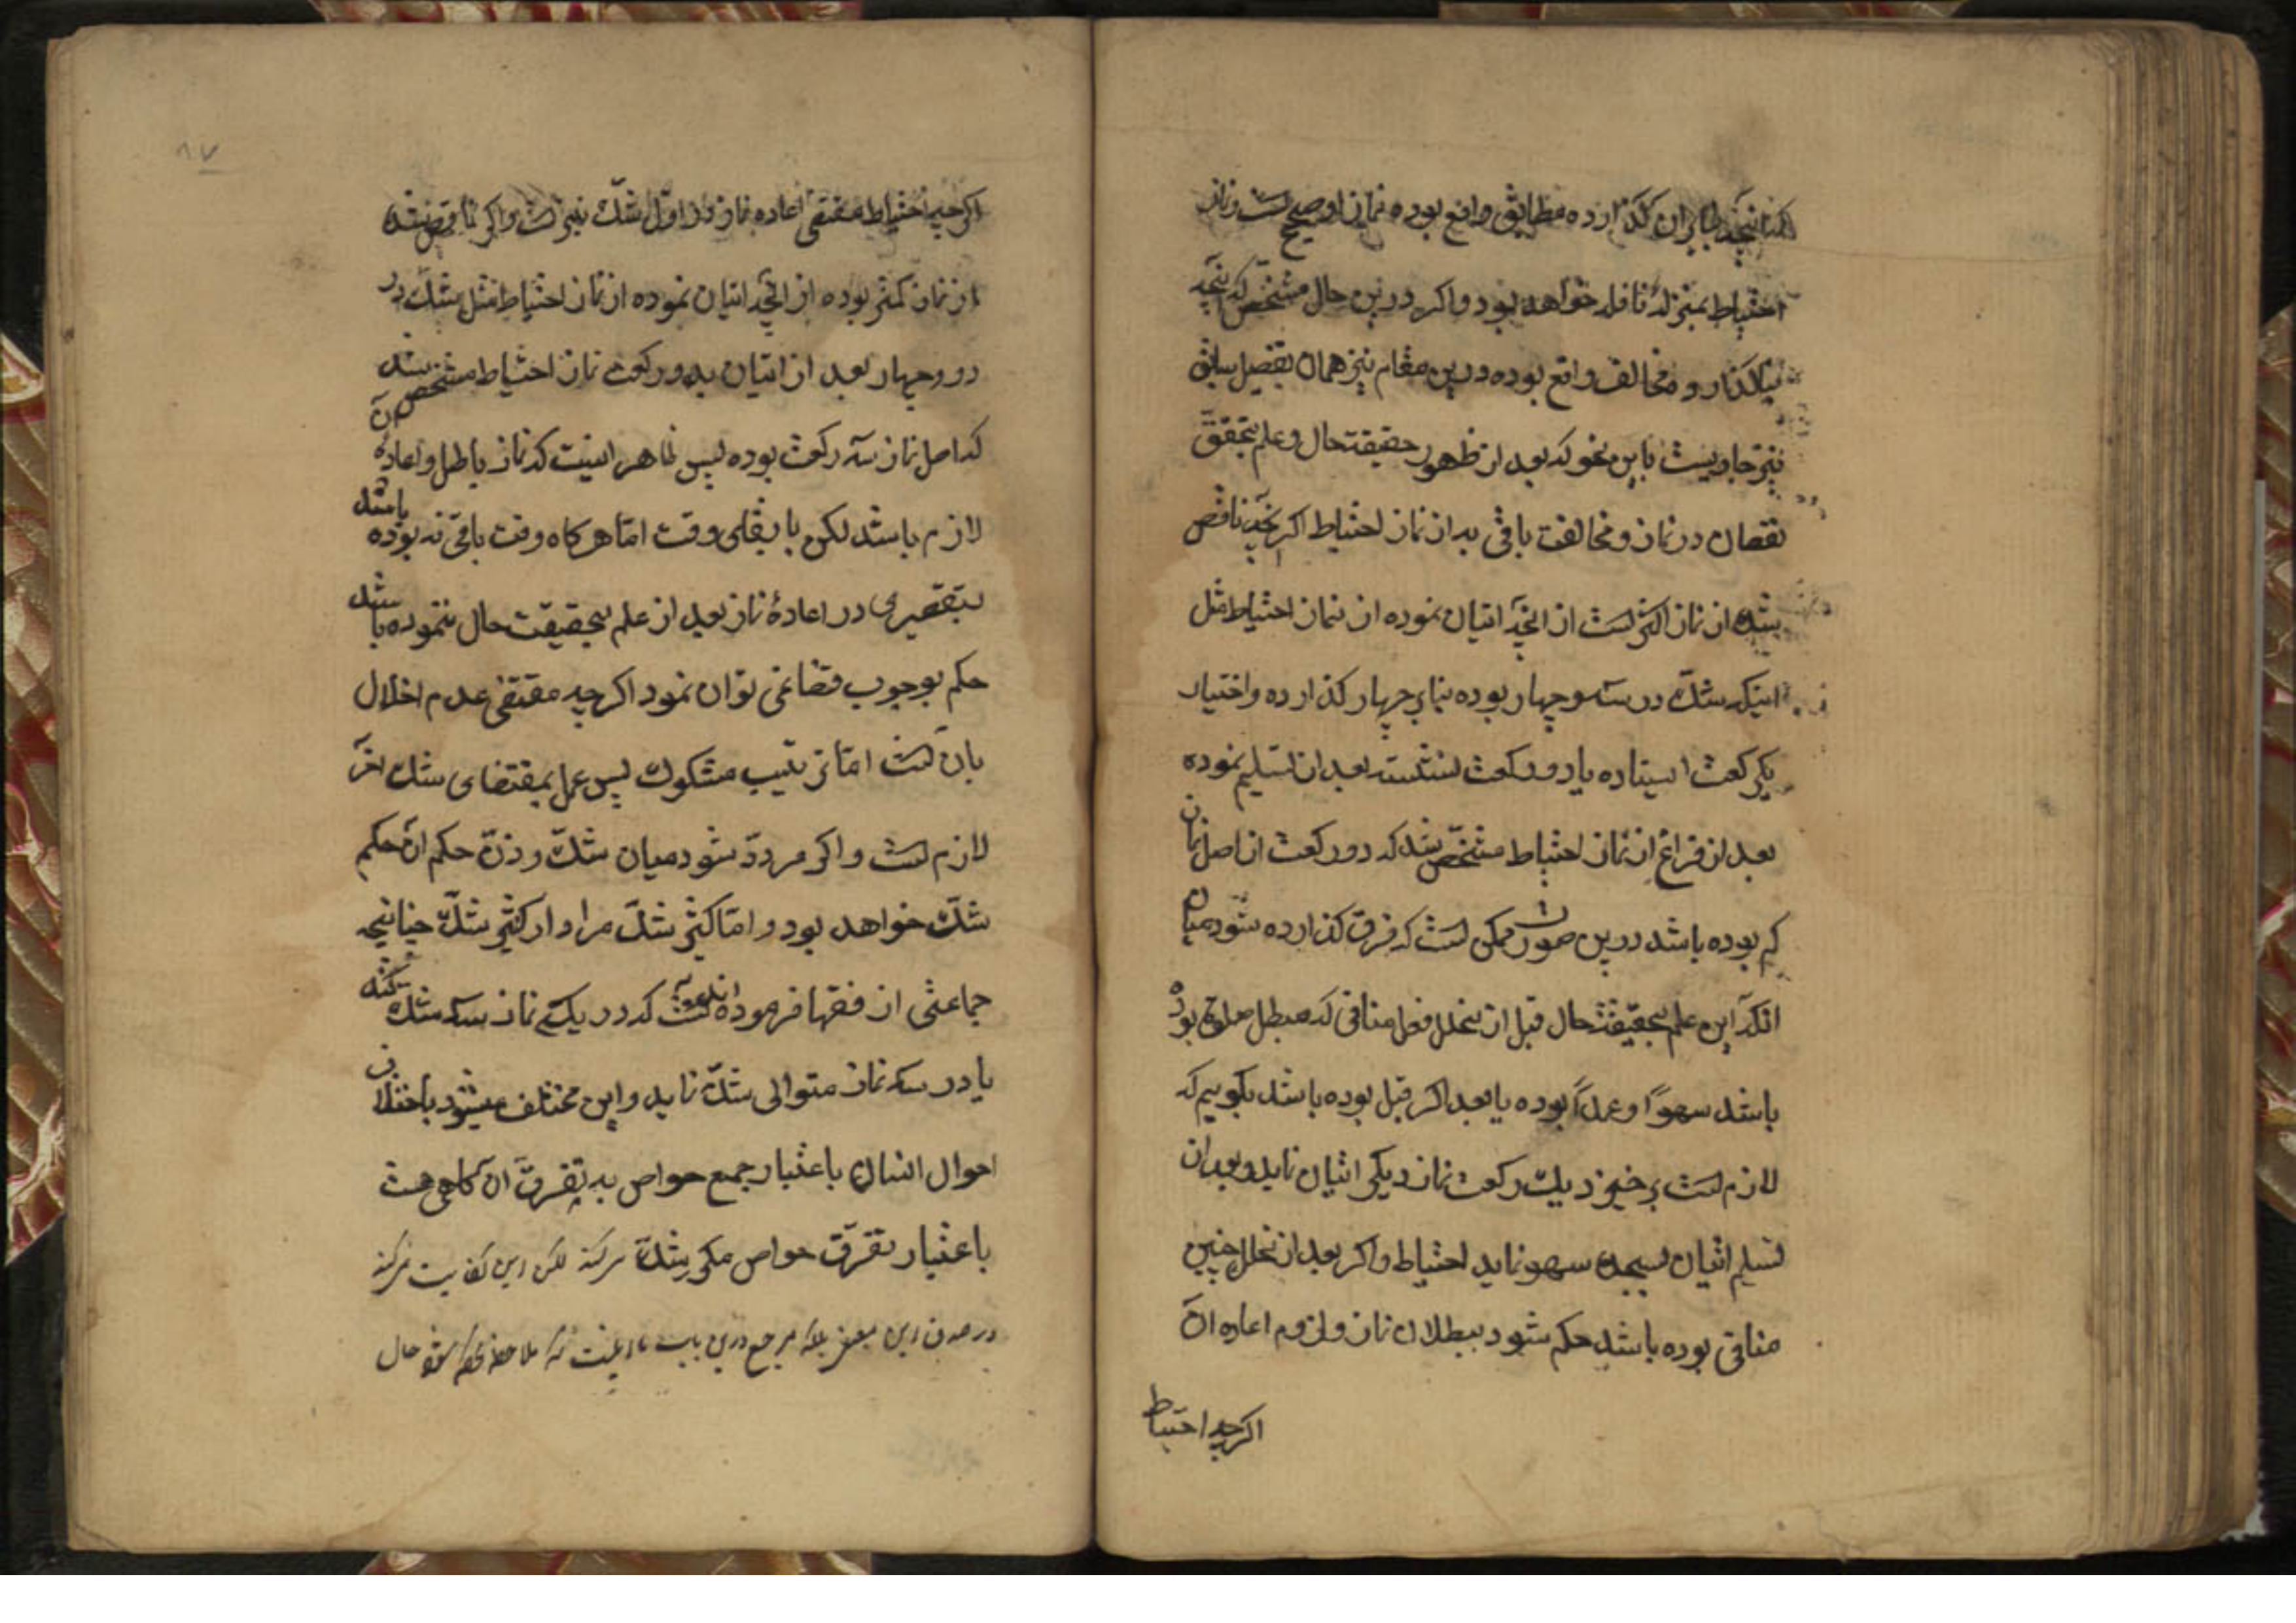 بنابران گذارده مطابق واقع بوده نماز او صحیح است و نماز
احتیاط بمنزلهٔ نافله خواهد بود و اکر درین حال مشخص که آنچه
میگذارد مخالف واقع بوده درین مقام نیز همان تفصیل سابق
نیز جاریست باین نحو که بعد از ظهور حقیقت حال و علم بتحقق
نقصان در نماز و مخالفت باقی به از نماز احتیاط اکر آنچه ناقص
شده از نماز اکثر است از آنچه اتیان نموده از نماز احتیاط مثل
اینکه شک در سه و چهار بوده بنا بر چهار کذارده و اختیار
یکرکعت ایستاده یا دو رکعت نشسته بعد از تسلیم نموده
بعد از فراغ از نماز احتیاط مشخص شد که دو رکعت از اصل نماز
کم بوده باشد درین صورت ممکن است که فرق کذارده شود میان
انکه این علم بحقیقت حال قبل از تخلل فعل منافی که مبطل صلوة بوده
باشد سهوًا و عمدًا بوده یا بعد اکر قبل بوده باشد بکوییم که
لازم است برخیزد یک رکعت نماز دیکر اتیان نماید و بعد از
تسلیم اتیان بسجده سهو نماید احتیاط و اکر بعد از تخلل چنین
منافی بوده باشد حکم شود ببطلان نماز و لزوم اعاده آن
اکرچه احتیاط
۸۷
اکرچه احتیاط مقتضی اعاده نماز در اول شک نیز است و اکر ناقص شده
از نماز کمتر بوده از آنچه اتیان نموده از نماز احتیاط مثل شک در
دو و چهار بعد از اتیان بدو رکعت نماز احتیاط مشخص شد
که اصل نماز سه رکعت بوده پس ظاهر اینست که نماز باطل و اعادهٔ آن
لازم باشد لکن با بقای وقت اما هرکاه وقت باقی نه بوده باشد
بتقصیری در اعادهٔ نماز بعد از علم بحقیقت حال ننموده باشد
حکم بوجوب قضا نمی توان نمود اکرچه مقتضی عدم اخلال
بان است اما ترتیب مشکوک پس عمل بمقتضای شک اخر
لازم است و اکر مردد شود میان شک و ظن حکم ان حکم
شک خواهد بود و اما کثیر شک مراد از کثیر شک چنانچه
جماعتی از فقها فرموده اند آنست که در یک نماز سه شک کند
یا در سه نماز متوالی شک نماید و این مختلف میشود باختلاف
احوال انسان باعتبار جمع حواص به تفرق ان کاهی هست
باعتبار تفرق حواص مکرر شک میکند لکن این کفایت نمیکند
در صدق این معنی بلکه مرجع درین باب ملاحظه حال